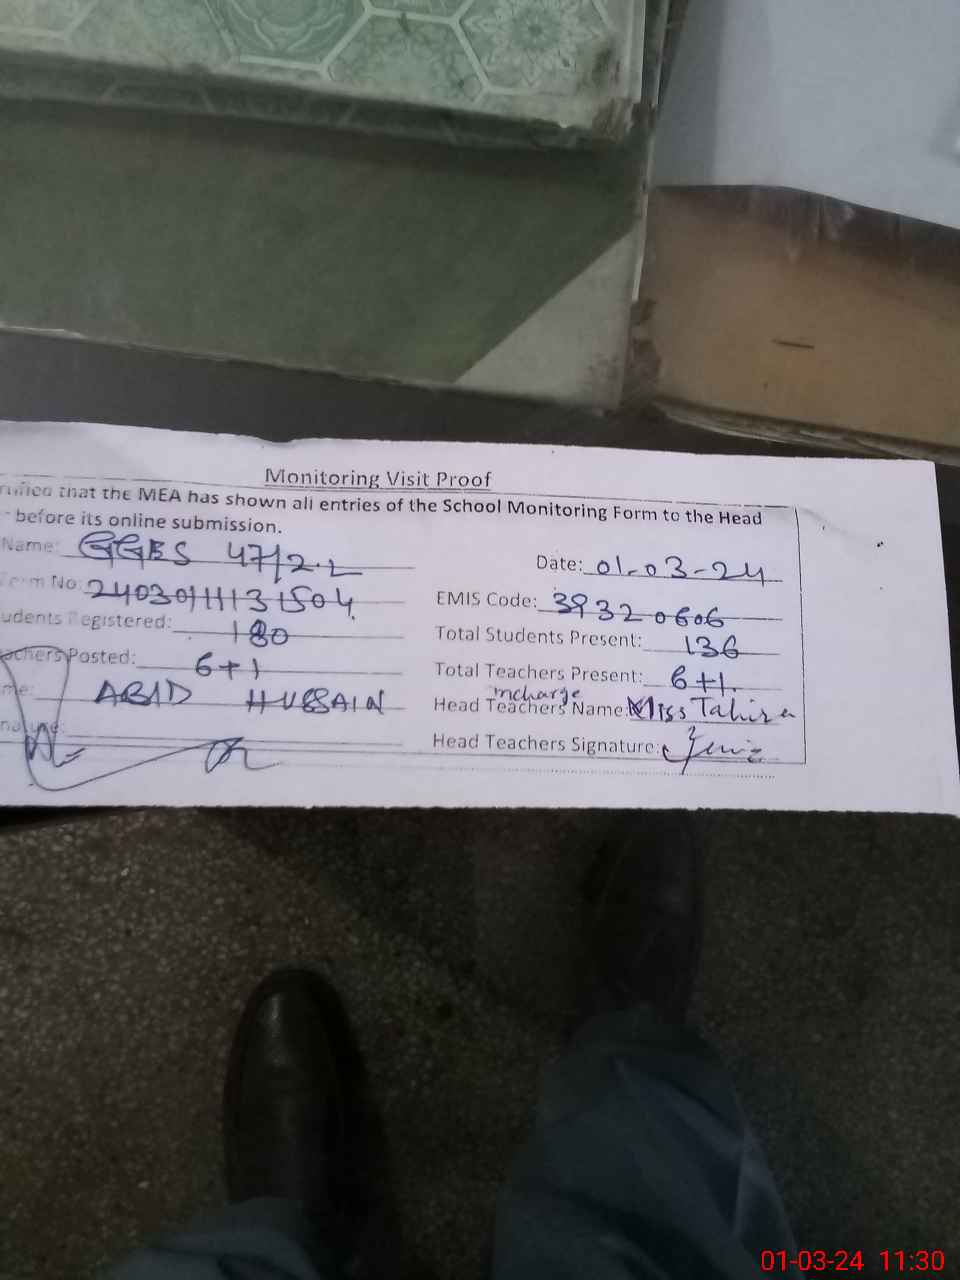 Monitoring Visit Proof
that the MEA has shown all entries of the School Monitoring Form to the Head
before its online submission.
Name: GGES 47/2-L Date: 01-03-24
No: 2403011131504 EMIS Code: 39320606
udents Registered: 180 Total Students Present: 136
achers Posted: 6+1 Total Teachers Present: 6+1
me: ABID HUSSAIN Head Teachers Name: Miss Tahira
incharge
Head Teachers Signature:
01-03-24 11:30